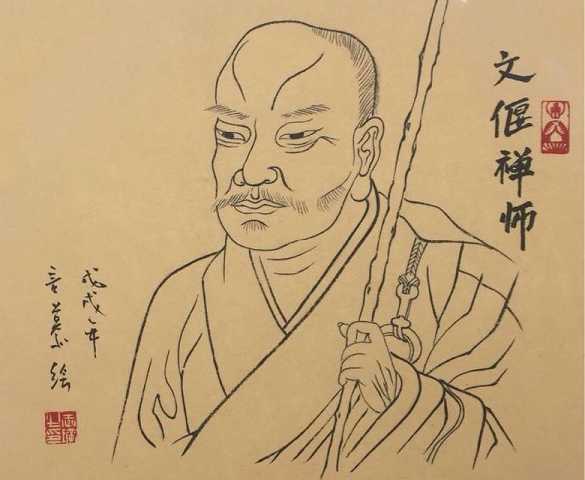 文偃禅师
戊戌年
言慕绘